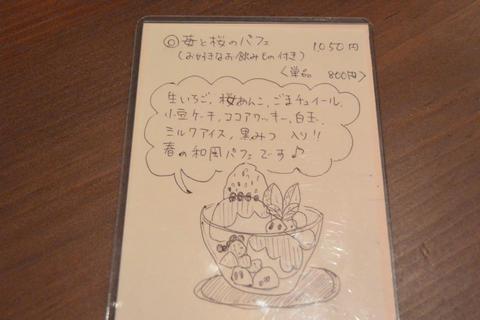 ◎苺と桜のパフェ 1,050円
(お好きなお飲みもの付き)
<単品 800円>
生いちご、桜あんこ、ごまチュイール、
小豆ケーキ、ココアクッキー、白玉、
ミルクアイス、黒みつ 入り!!
春の和風パフェです♪